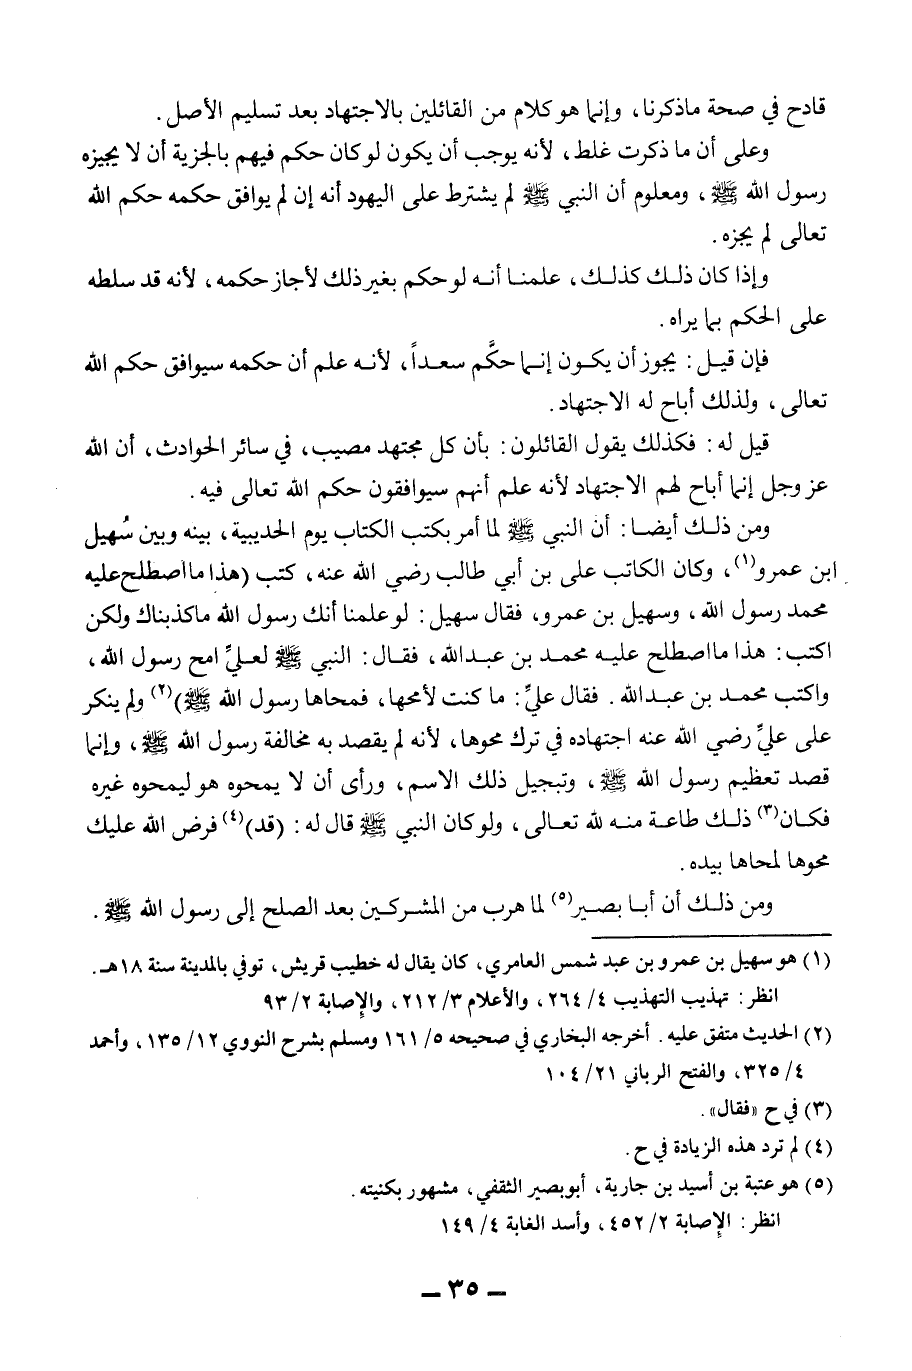 قادح في صحة ماذكرنا، وإنما هو كلام من القائلين بالاجتهاد بعد تسليم الأصل.
وعلى أن ما ذكرت غلط، لأنه يوجب أن يكون لو كان حكم فيهم بالجزية أن لا يجيزه
رسول الله ﷺ، ومعلوم أن النبي ﷺ لم يشترط على اليهود أنه إن لم يوافق حكمه حكم الله
تعالى لم يجزه.
وإذا كان ذلك كذلك، علمنا أنه لو حكم بغير ذلك لأجاز حكمه، لأنه قد سلطه
على الحكم بما يراه.
فإن قيل: يجوز أن يكون إنما حكَّم سعداً، لأنه علم أن حكمه سيوافق حكم الله
تعالى، ولذلك أباح له الاجتهاد.
قيل له: فكذلك يقول القائلون: بأن كل مجتهد مصيب، في سائر الحوادث، أن الله
عز وجل إنما أباح لهم الاجتهاد لأنه علم أنهم سيوافقون حكم الله تعالى فيه.
ومن ذلك أيضا: أن النبي ﷺ لما أمر بكتب الكتاب يوم الحديبية، بينه وبين سُهيل
ابن عمرو(١)، وكان الكاتب على بن أبي طالب رضي الله عنه، كتب (هذا مااصطلح عليه
محمد رسول الله، وسهيل بن عمرو، فقال سهيل: لو علمنا أنك رسول الله ماكذبناك ولكن
اكتب: هذا مااصطلح عليه محمد بن عبدالله، فقال: النبي ﷺ لعليٍّ امح رسول الله،
واكتب محمد بن عبدالله. فقال عليٌّ: ما كنت لأمحها، فمحاها رسول الله ﷺ)(٢) ولم ينكر
على عليٍّ رضي الله عنه اجتهاده في ترك محوها، لأنه لم يقصد به مخالفة رسول الله ﷺ، وإنما
قصد تعظيم رسول الله ﷺ، وتبجيل ذلك الاسم، ورأى أن لا يمحوه هو ليمحوه غيره
فكان(٣) ذلك طاعة منه لله تعالى، ولو كان النبي ﷺ قال له: (قد)(٤) فرض الله عليك
محوها لمحاها بيده.
ومن ذلك أن أبا بصير(٥) لما هرب من المشركين بعد الصلح إلى رسول الله ﷺ.
(١) هو سهيل بن عمرو بن عبد شمس العامري، كان يقال له خطيب قريش، توفي بالمدينة سنة ١٨هـ.
انظر: تهذيب التهذيب ٤/ ٢٦٤، والأعلام ٣/ ٢١٢، والإصابة ٢/ ٩٣
(٢) الحديث متفق عليه. أخرجه البخاري في صحيحه ٥/ ١٦١ ومسلم بشرح النووي ١٢/ ١٣٥، وأحمد
٤/ ٣٢٥، والفتح الرباني ٢١/ ١٠٤
(٣) في ح «فقال».
(٤) لم ترد هذه الزيادة في ح.
(٥) هو عتبة بن أسيد بن جارية، أبوبصير الثقفي، مشهور بكنيته.
انظر: الإصابة ٢/ ٤٥٢، وأسد الغابة ٤/ ١٤٩
ــ ٣٥ ــ